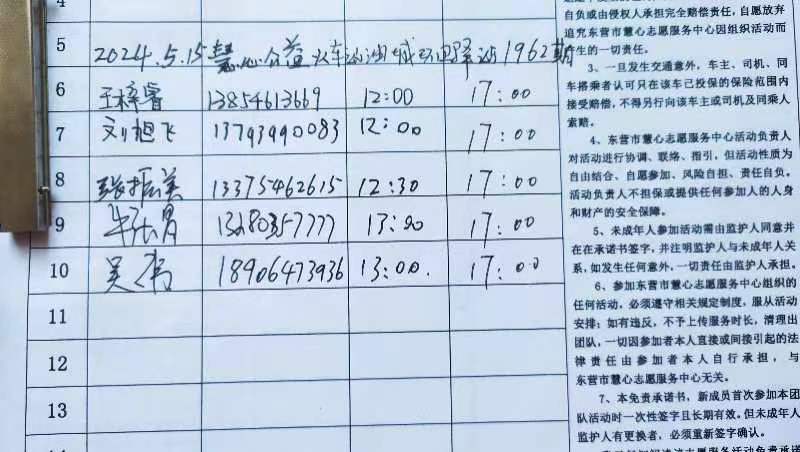 5 2024.5.15慧心公益火车活油城环回驿站1962期
6 王梓睿 13854613669 12:00 17:00
7 刘旭飞 13793990083 12:00 17:00
8 张振美 13375462615 12:30 17:00
9 13:00 17:00
10 吴 18906473936 13:00. 17:00
11
12
13
自负或由侵权人承担完全赔偿责任，自愿放弃
追究东营市慧心志愿服务中心因组织活动而
产生的一切责任。
3、一旦发生交通意外，车主、司机、同
车搭乘者认可只在该车已投保的保险范围内
接受赔偿，不得另行向该车主或司机及同乘人
索赔。
4、东营市慧心志愿服务中心活动负责人
对活动进行协调、联络、指引，但活动性质为
自由结合、自愿参加、风险自担、责任自负。
活动负责人不担保或提供任何参加人的人身
和财产的安全保障。
5、未成年人参加活动需由监护人同意并
在在承诺书签字，并注明监护人与未成年人关
系，如发生任何意外，一切责任由监护人承担。
6、参加东营市慧心志愿服务中心组织的
任何活动，必须遵守相关规定制度，服从活动
安排；如有违反，不予上传服务时长，清理出
团队，一切因参加者本人直接或间接引起的法
律责任由参加者本人自行承担，与
东营市慧心志愿服务中心无关。
7、本免责承诺书，新成员首次参加本团
队活动时一次性签字且长期有效。但未成年人
监护人有更换者，必须重新签字确认。